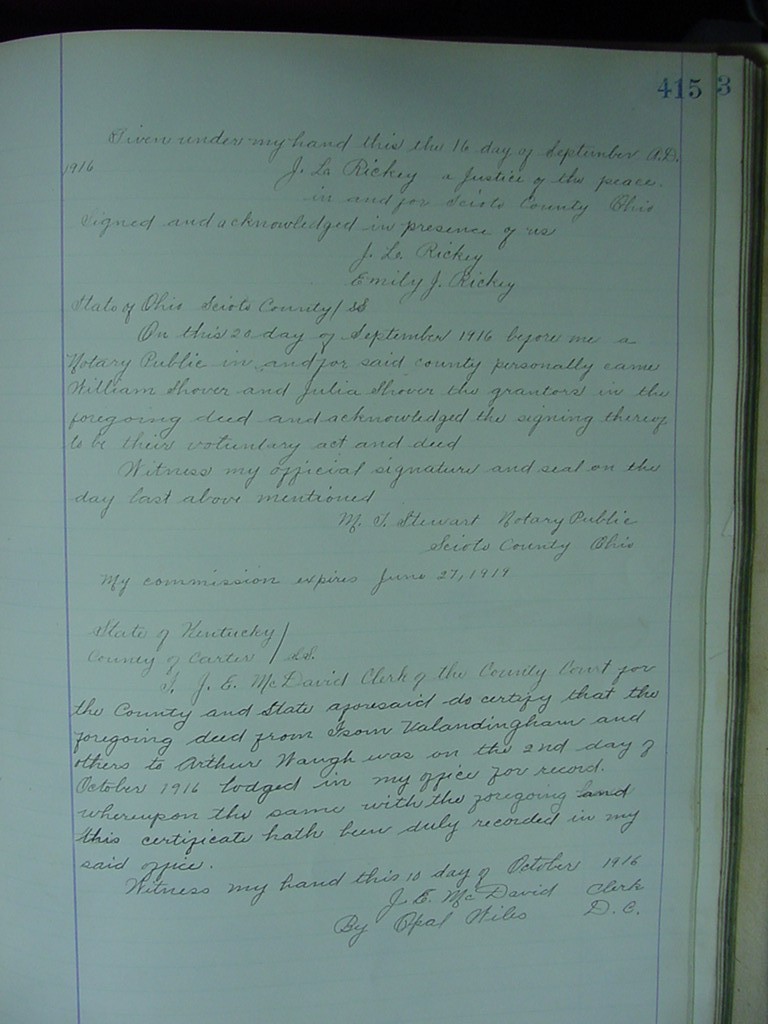 415 3
Given under my hand this the 16 day of September A.D.
1916 J. L. Rickey a Justice of the peace.
in and for Scioto County Ohio
Signed and acknowledged in presence of us
J. L. Rickey
Emily J. Rickey
State of Ohio Scioto County / SS
On this 20 day of September 1916 before me a
Notary Public in and for said county personally came
William Shover and Julia Shover the grantors in the
foregoing deed and acknowledged the signing thereof
to be their voluntary act and deed
Witness my official signature and seal on the
day last above mentioned
M. T. Stewart Notary Public
Scioto County Ohio
My commission expires June 27, 1919
State of Kentucky /
County of Carter / SS.
I, J. E. McDavid Clerk of the County Court for
the County and State aforesaid do certify that the
foregoing deed from Isom Valandingham and
others to Arthur Waugh was on the 2nd day of
October 1916 lodged in my office for record.
whereupon the same with the foregoing and
this certificate hath been duly recorded in my
said office.
Witness my hand this 10 day of October 1916
J. E. McDavid Clerk
By Opal Wiles D. C.